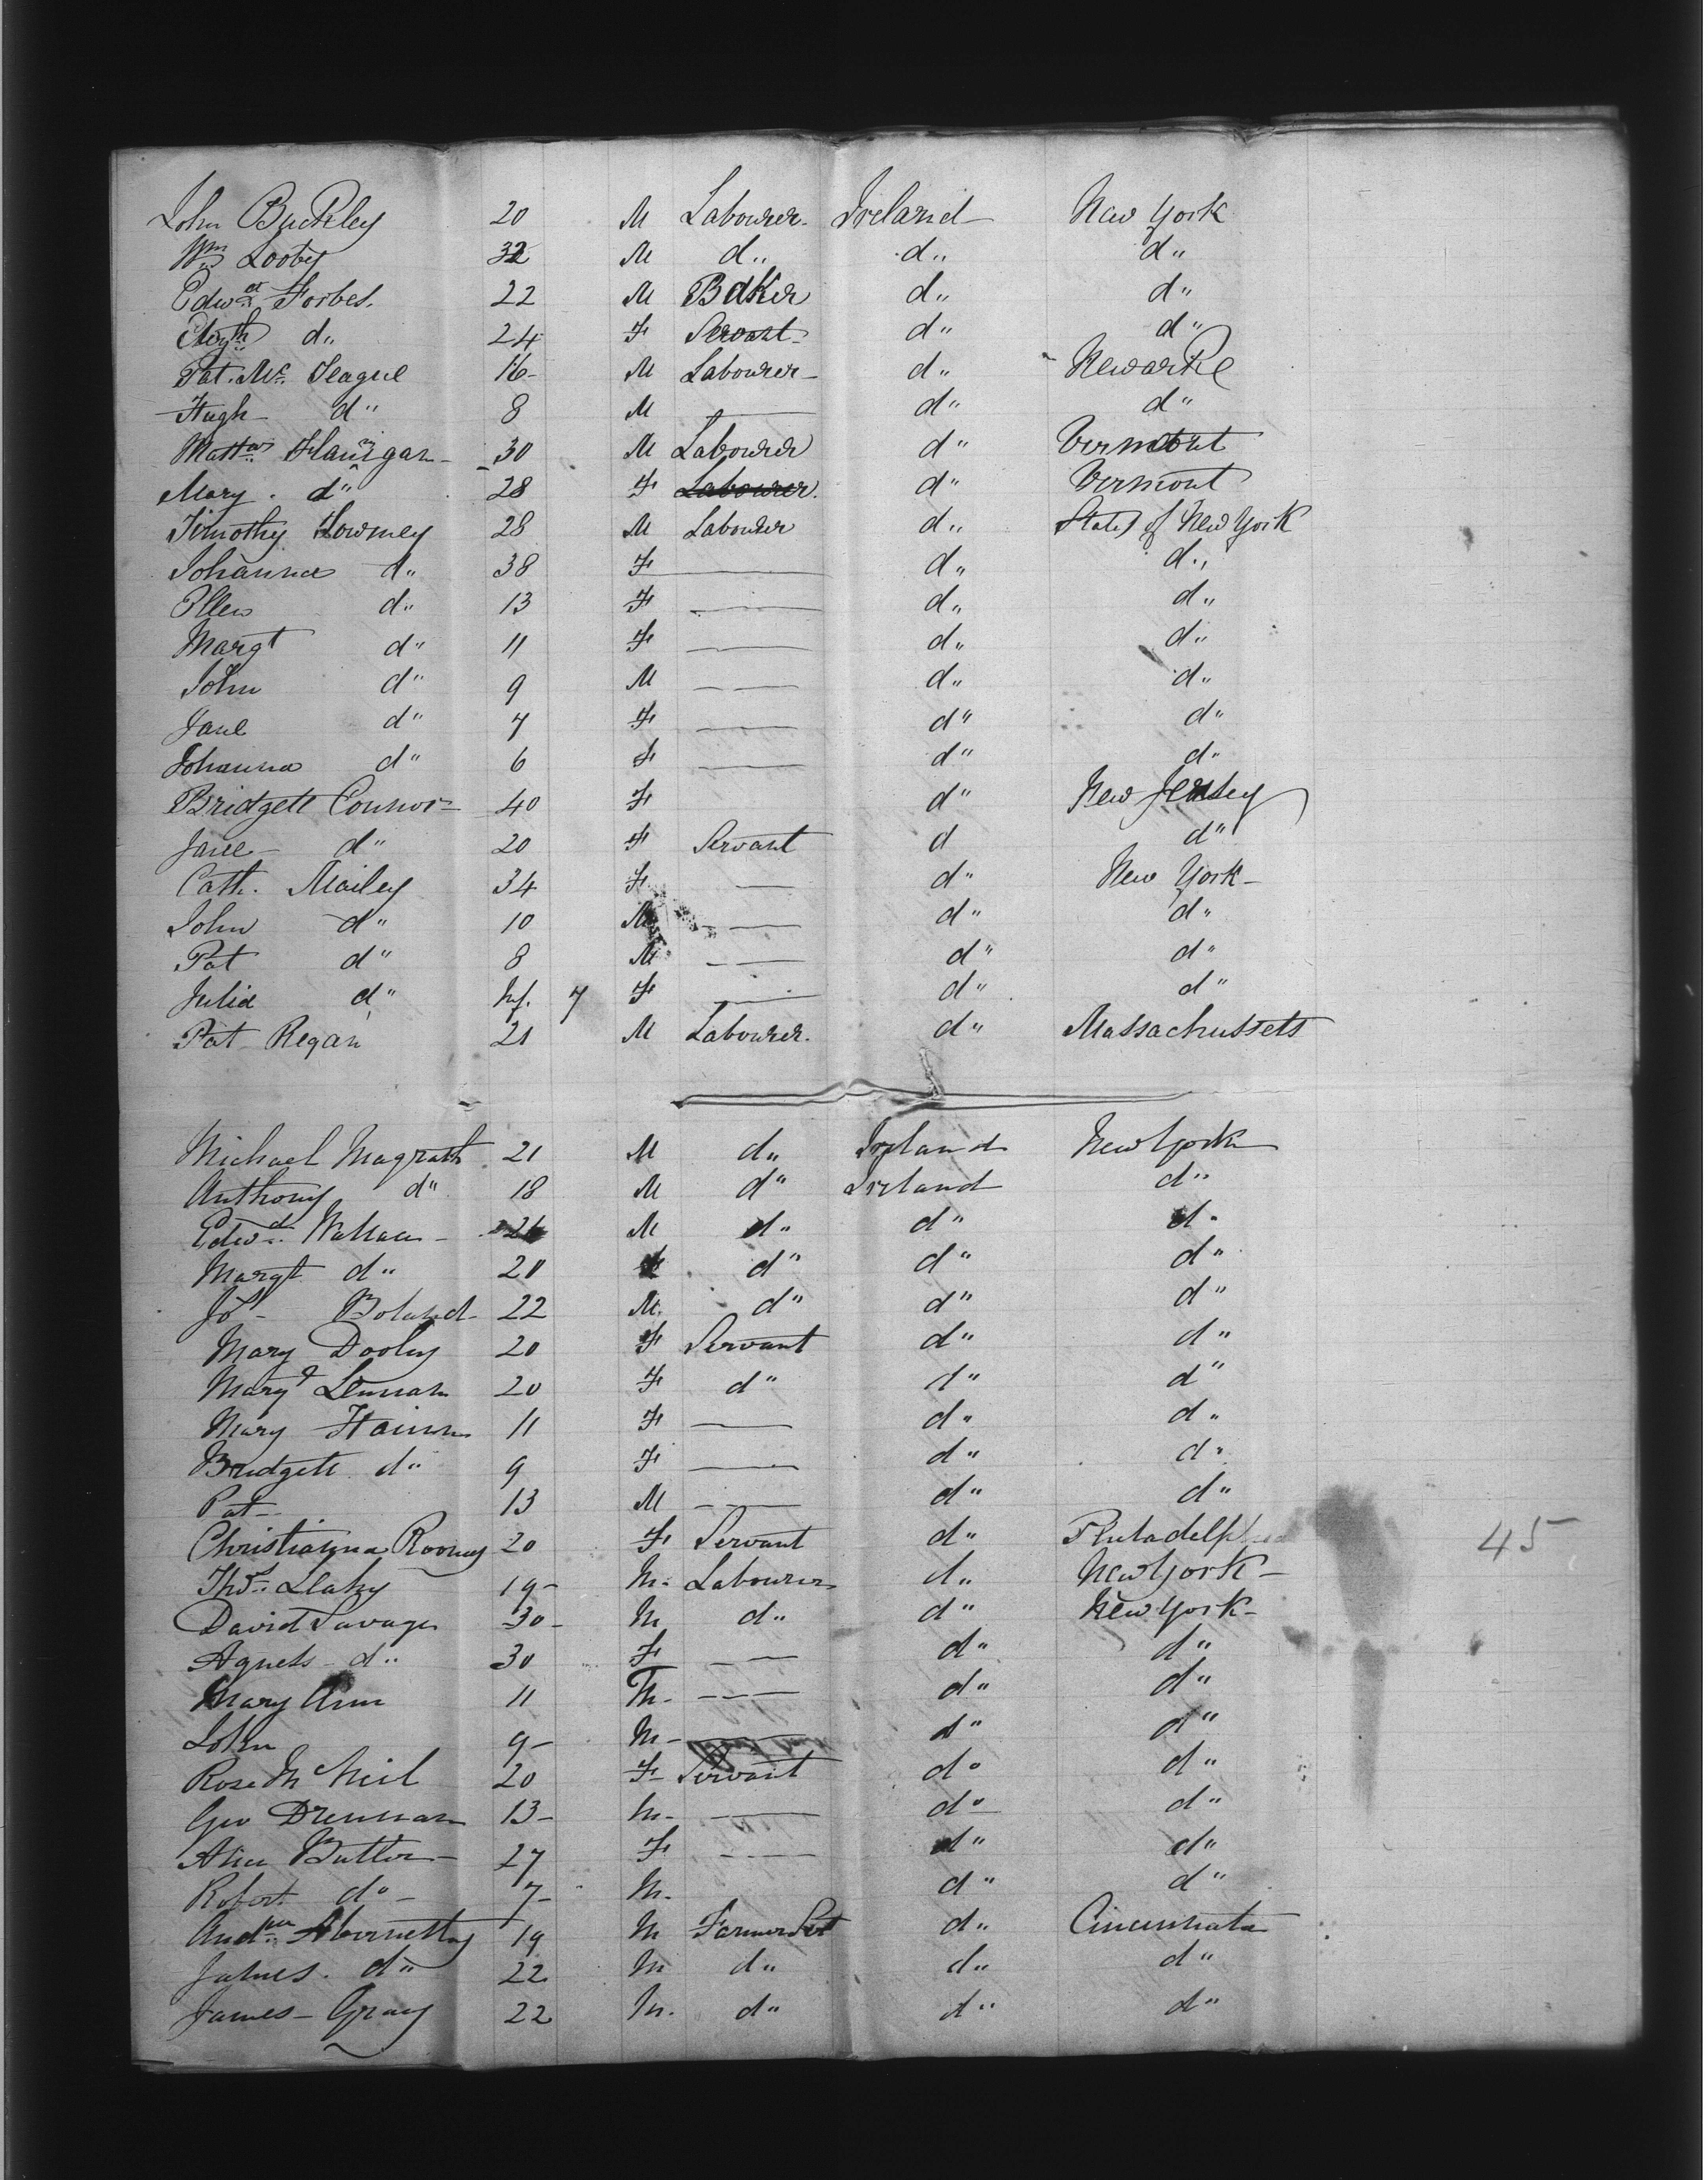 John Buckley 20 M Labourer Ireland New York
Wm Looby 32 M d" d" d"
Edwd Forbes 22 M Baker d" d"
Elizth d" 24 F Servant d" d"
Pat. Mc Teague 16 M Labourer d" Newarke
Hugh d" 8 M — d" d"
Matthw Flanigan 30 M Labourer d" Vermont
Mary d" 28 F Labourer d" Vermont
Timothy 28 M Labourer d" State of New York
Johanna d" 38 F — d" d"
Ellen d" 13 F — d" d"
Margt d" 11 F — d" d"
John d" 9 M — d" d"
Jane d" 7 F — d" d"
Johanna d" 6 F — d" d"
Bridgett Connor 40 F d" New Jersey
Jane d" 20 F Servant d d"
Cath. Mailey 34 F — d" New York
John d" 10 M — d" d"
Pat d" 8 M — d" d"
Julia d" Inf. 7 F — d" d"
Pat Regan 21 M Labourer. d" Massachussets
Michael Magrath 21 M d" Ireland New York
Anthony d" 18 M d" Ireland d"
Edwd Wallace M d" d" d"
Margt d" 20 F d" d" d"
Jos Boland 22 M d" d" d"
Mary Dooley 20 F Servant d" d"
Margt Lennan 20 F d" d" d"
Mary 11 F — d" d"
Bridgett d" 9 F — d" d"
Pat 13 M — d" d"
Christianna Rooney 20 F Servant d" Philadelphia
Thos Leahy 19 M Labourer d" New York
David Savage 30 M d" d" New York
Agnes d" 30 F — d" d"
Mary Ann 11 M — d" d"
John 9 M — d" d"
Rose Mc Neil 20 F Servant d" d"
Geo Drennan 13 M — d" d"
Alice Butler 27 F — d" d"
Robert do 7 M d" d"
Andw Abernethy 19 M Farmer d" Cincinnata
James d" 22 M d" d" d"
James Gray 22 M d" d" d"
45